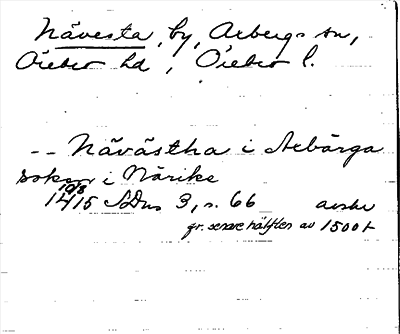 Nävesta, by, Axbergs sn,
Örebro hd, Örebro l.
-- Nävästha i Axbärga
sokn i Närike
10/8
1415 SDns 3, s. 66 avskr
fr. senare hälften av 1500t